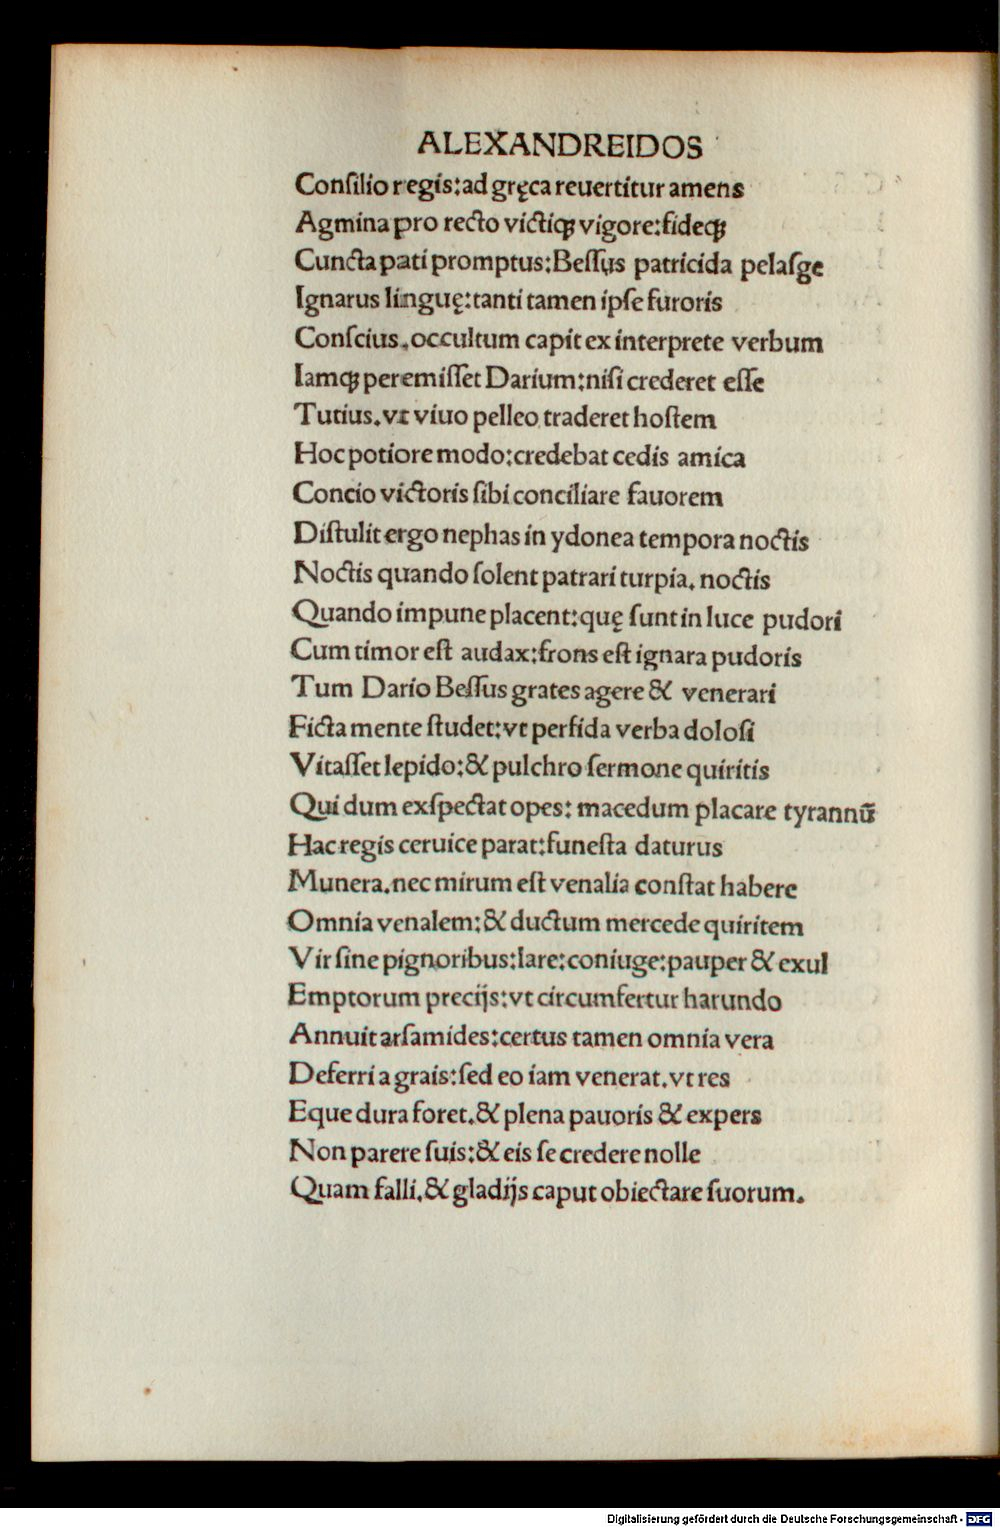 ALEXANDREIDOS
Conſilio regis:ad gręca reuertitur amens
Agmina pro recto victiqꝫ vigore:fideqꝫ
Cuncta pati promptus:Beſſus patricida pelaſge
Ignarus linguę:tanti tamen ipſe furoris
Conſcius.occultum capit ex interprete verbum
Iamqꝫ peremiſſet Darium:niſi crederet eſſe
Tutius.vt viuo pelleo traderet hoſtem
Hoc potiore modo:credebat cedis amica
Concio victoris ſibi conciliare fauorem
Diſtulit ergo nephas in ydonea tempora noctis
Noctis quando ſolent patrari turpia. noctis
Quando impune placent:quę ſunt in luce pudori
Cum timor eſt audax:frons eſt ignara pudoris
Tum Dario Beſſus grates agere & venerari
Ficta mente ſtudet:vt perfida verba doloſi
Vitaſſet lepido:& pulchro ſermone quiritis
Qui dum exſpectat opes: macedum placare tyrannū
Hac regis ceruice parat:funeſta daturus
Munera.nec mirum eſt venalia conſtat habere
Omnia venalem:& ductum mercede quiritem
Vir ſine pignoribus:lare:coniuge:pauper & exul
Emptorum precijs:vt circumfertur harundo
Annuit arſamides:certus tamen omnia vera
Deferri a grais:ſed eo iam venerat.vt res
Eque dura foret.& plena pauoris & expers
Non parere ſuis:& eis ſe credere nolle
Quam falli.& gladijs caput obiectare ſuorum.
Digitalisierung gefördert durch die Deutsche Forschungsgemeinschaft - DFG